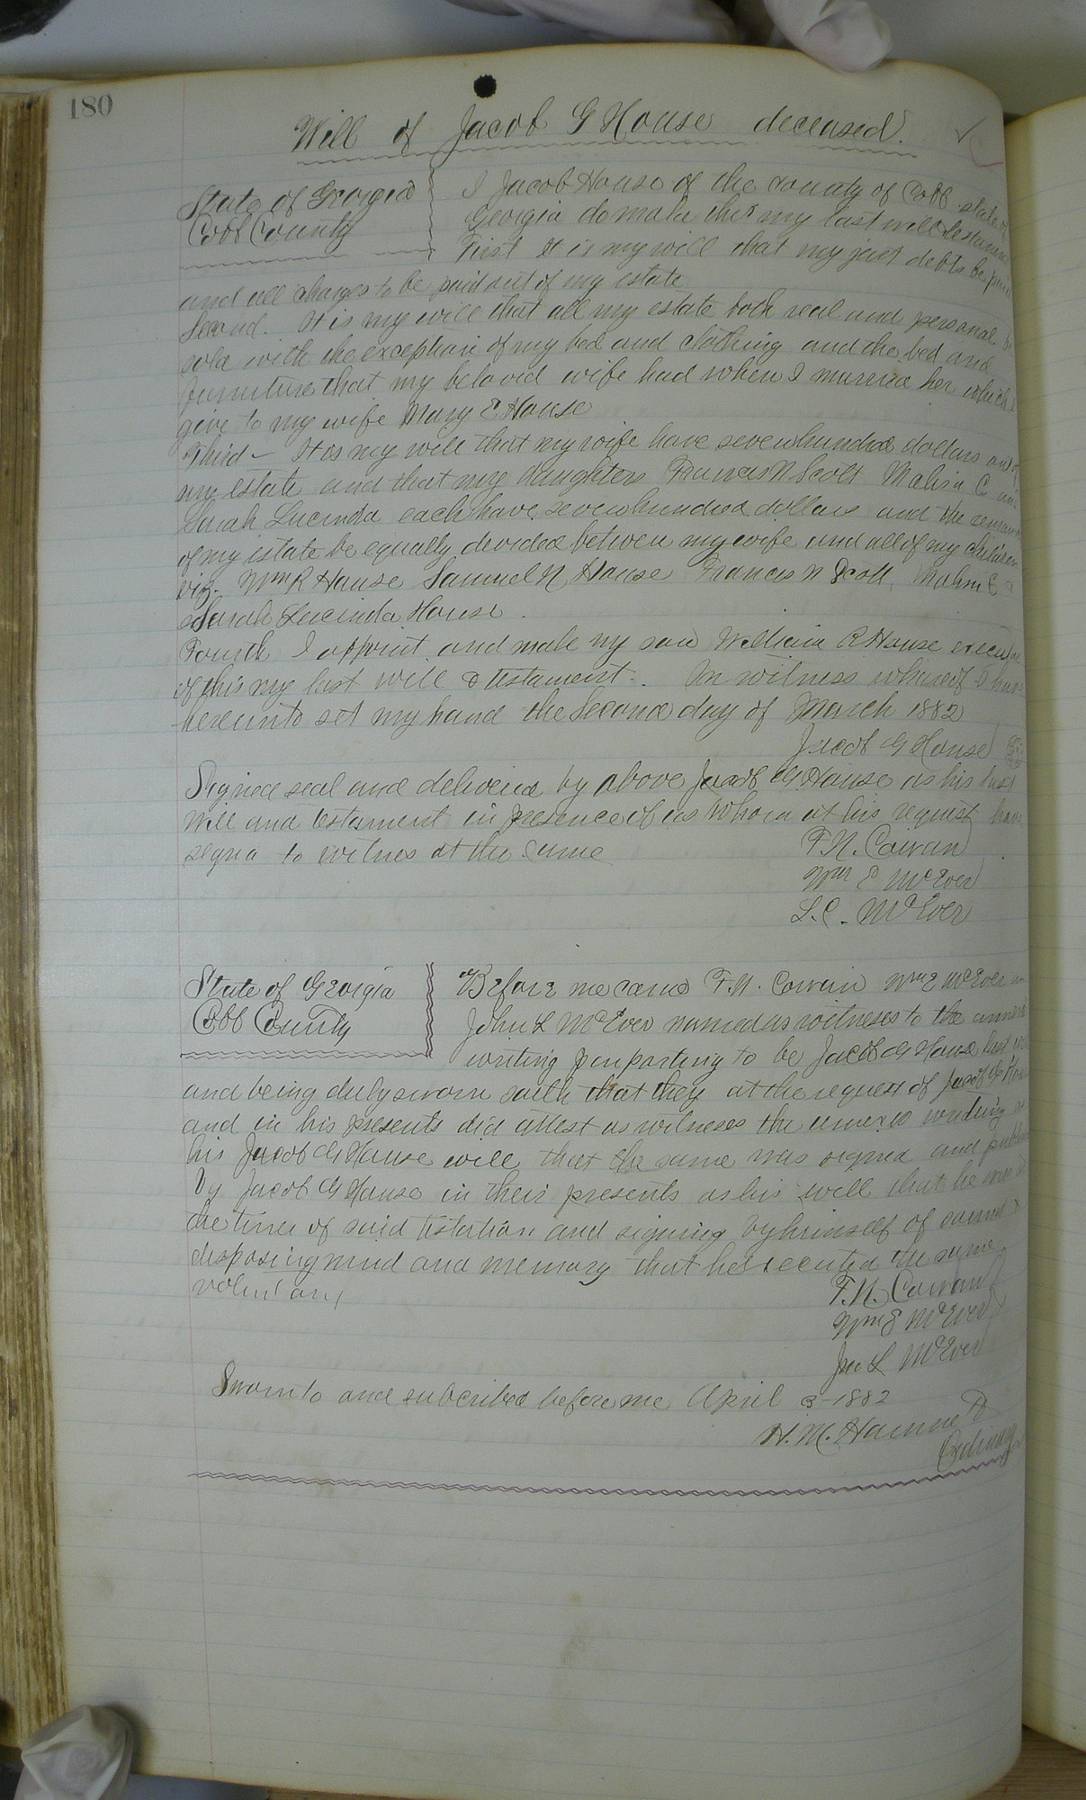 180
Will of Jacob G House deceased.
State of Georgia
Cobb County
I Jacob House of the county of Cobb state of
Georgia do make this my last will & testament
First It is my will that my just debts be paid
and all charges to be paid out of my estate
Second. It is my will that all my estate both real and personal be
sold with the exception of my bed and clothing and the bed and
furniture that my beloved wife had when I married her which I
give to my wife Mary E House
Third – It is my will that my wife have seven hundred dollars out of
my estate and that my daughters Frances N Scott Malisa C and
Sarah Lucinda each have seven hundred dollars and the
of my estate be equally divided between my wife and all of my children
viz. Wm R House Samuel N House Frances N Scott
Sarah Lucinda House.
Fourth I appoint and make my son William R House
of this my last will & testament. In witness whereof I have
hereunto set my hand the Second day of March 1882
Jacob G House
Signed seal and delivered by above Jacob G House as his last
Will and testament in presence of us whom at his request have
to witnes at the same
F.N. Cowan
Wm E McEver
L.C. McEver
State of Georgia
Cobb County
Before me came F.N. Cowan Wm E McEver
John L McEver named as witneses to the
writing purporting to be Jacob G House last
and being duly sworn saith that they at the request of Jacob G House
and in his presents did attest as witneses the writing
his Jacob G House will that the same was signed and
by Jacob G House in their presents as his will that he was at
the time of said and signing by himself of sound &
disposing mind and memory that he the same
voluntary
F.N. Cowan
Wm E McEver
Jno L McEver
Sworn to and subcribed before me April 3-1882
H.M. Hammett
Ordinary